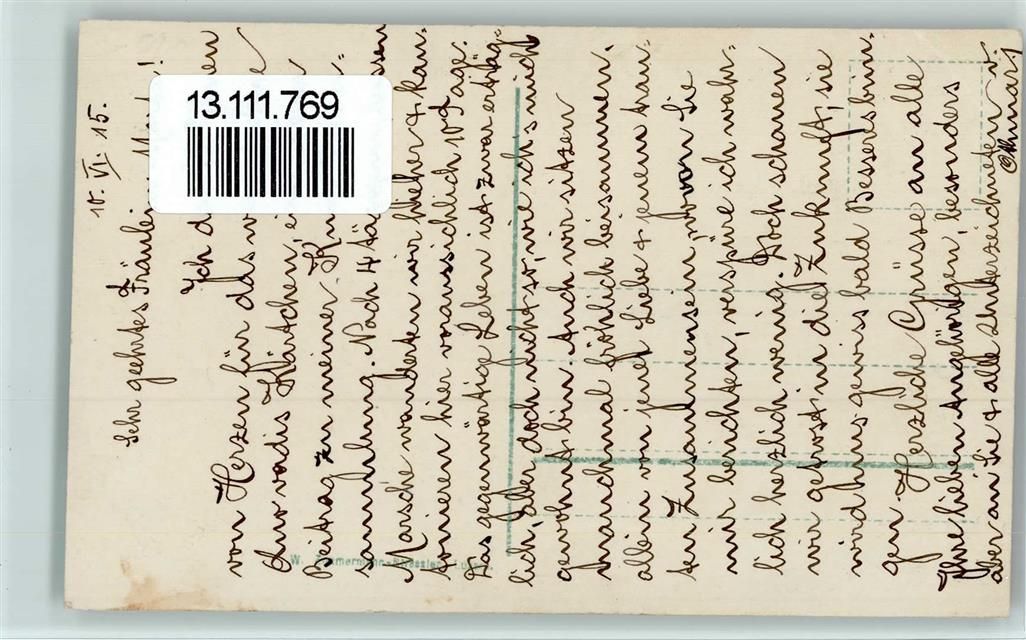 10. VI. 15.
Sehr geehrtes Fräulein
Ich d
von Herzen für das
Quo vadis Kärtchen,
Beitrag zu meiner
sammlung. Nach 4
Marsche wanderten wir hieher & kan-
tonieren hier voraussichlich 10 Tage.
Das gegenwärtige Leben ist zwar erträg-
lich, aber doch nicht so, wie ich's mich
gewohnt bin. Auch wir sitzen
manchmal fröhlich beisammen,
allein von jener Liebe & jenem trau-
ten Zusammensein, wovon Sie
mir berichten, verspüre ich wahr-
lich herzlich wenig. Doch schauen
wir getrost in die Zukunft, sie
wird uns gewiss bald Besseres brin-
gen. Herzliche Grüsse an alle
Ihre lieben Angehörigen, besonders
aber an Sie & alle Unterzeichneten v.
13.111.769
W. Zimmermann-Strässler, Luzern